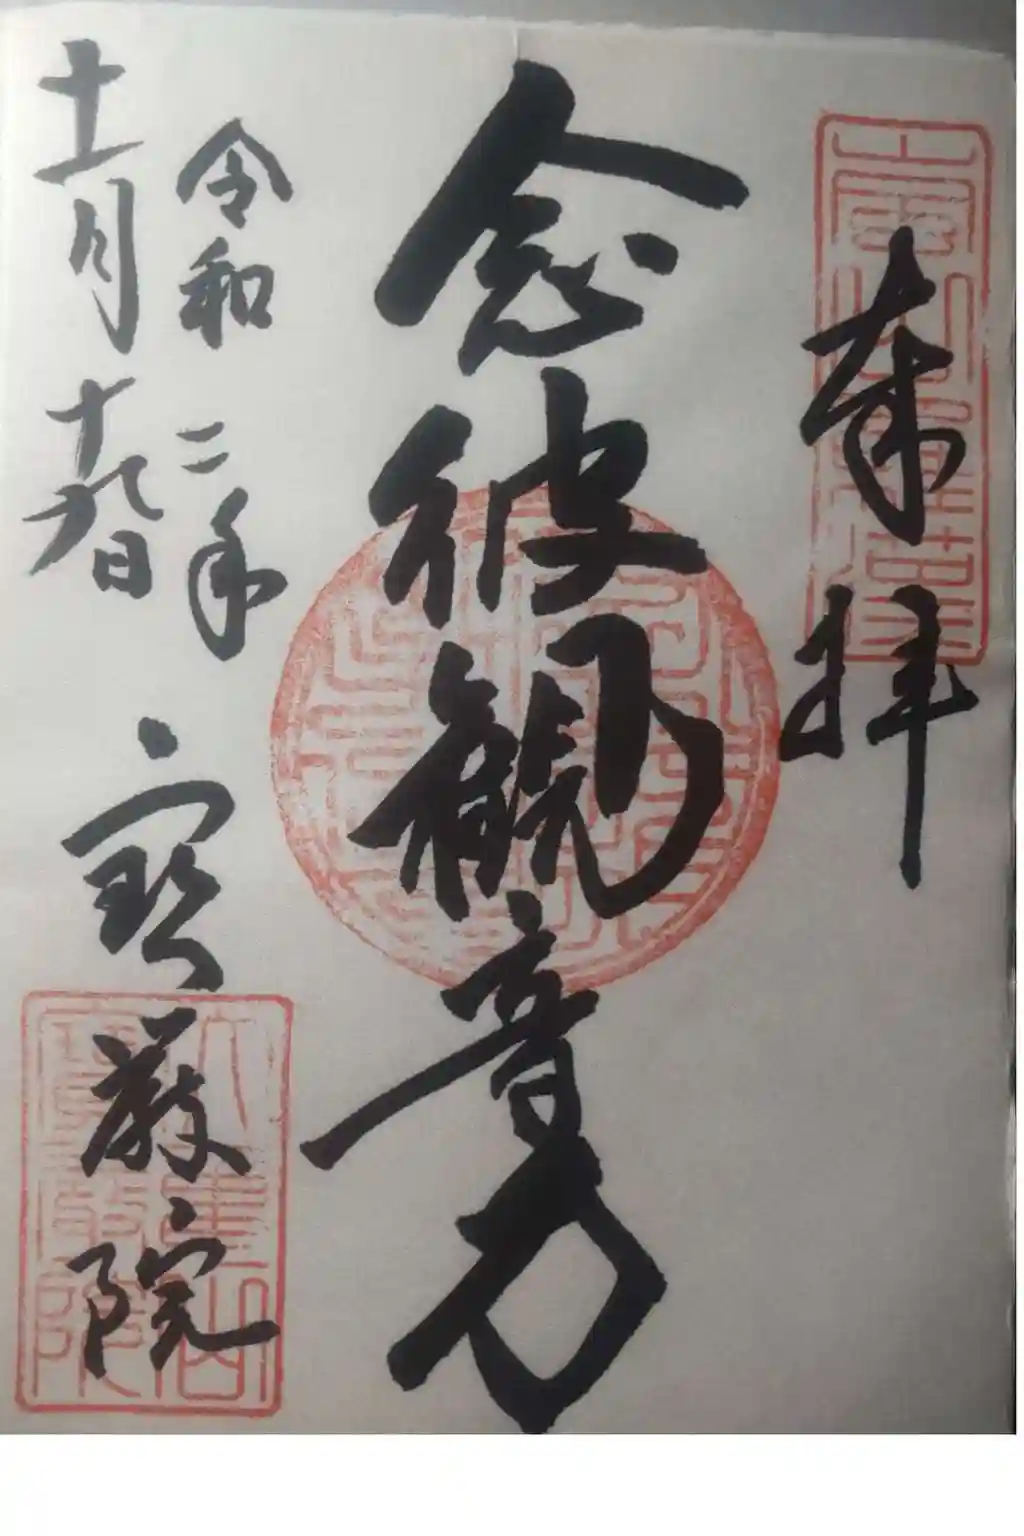 奉拝
念彼観音力
令和二年
十一月十九日
寳厳院